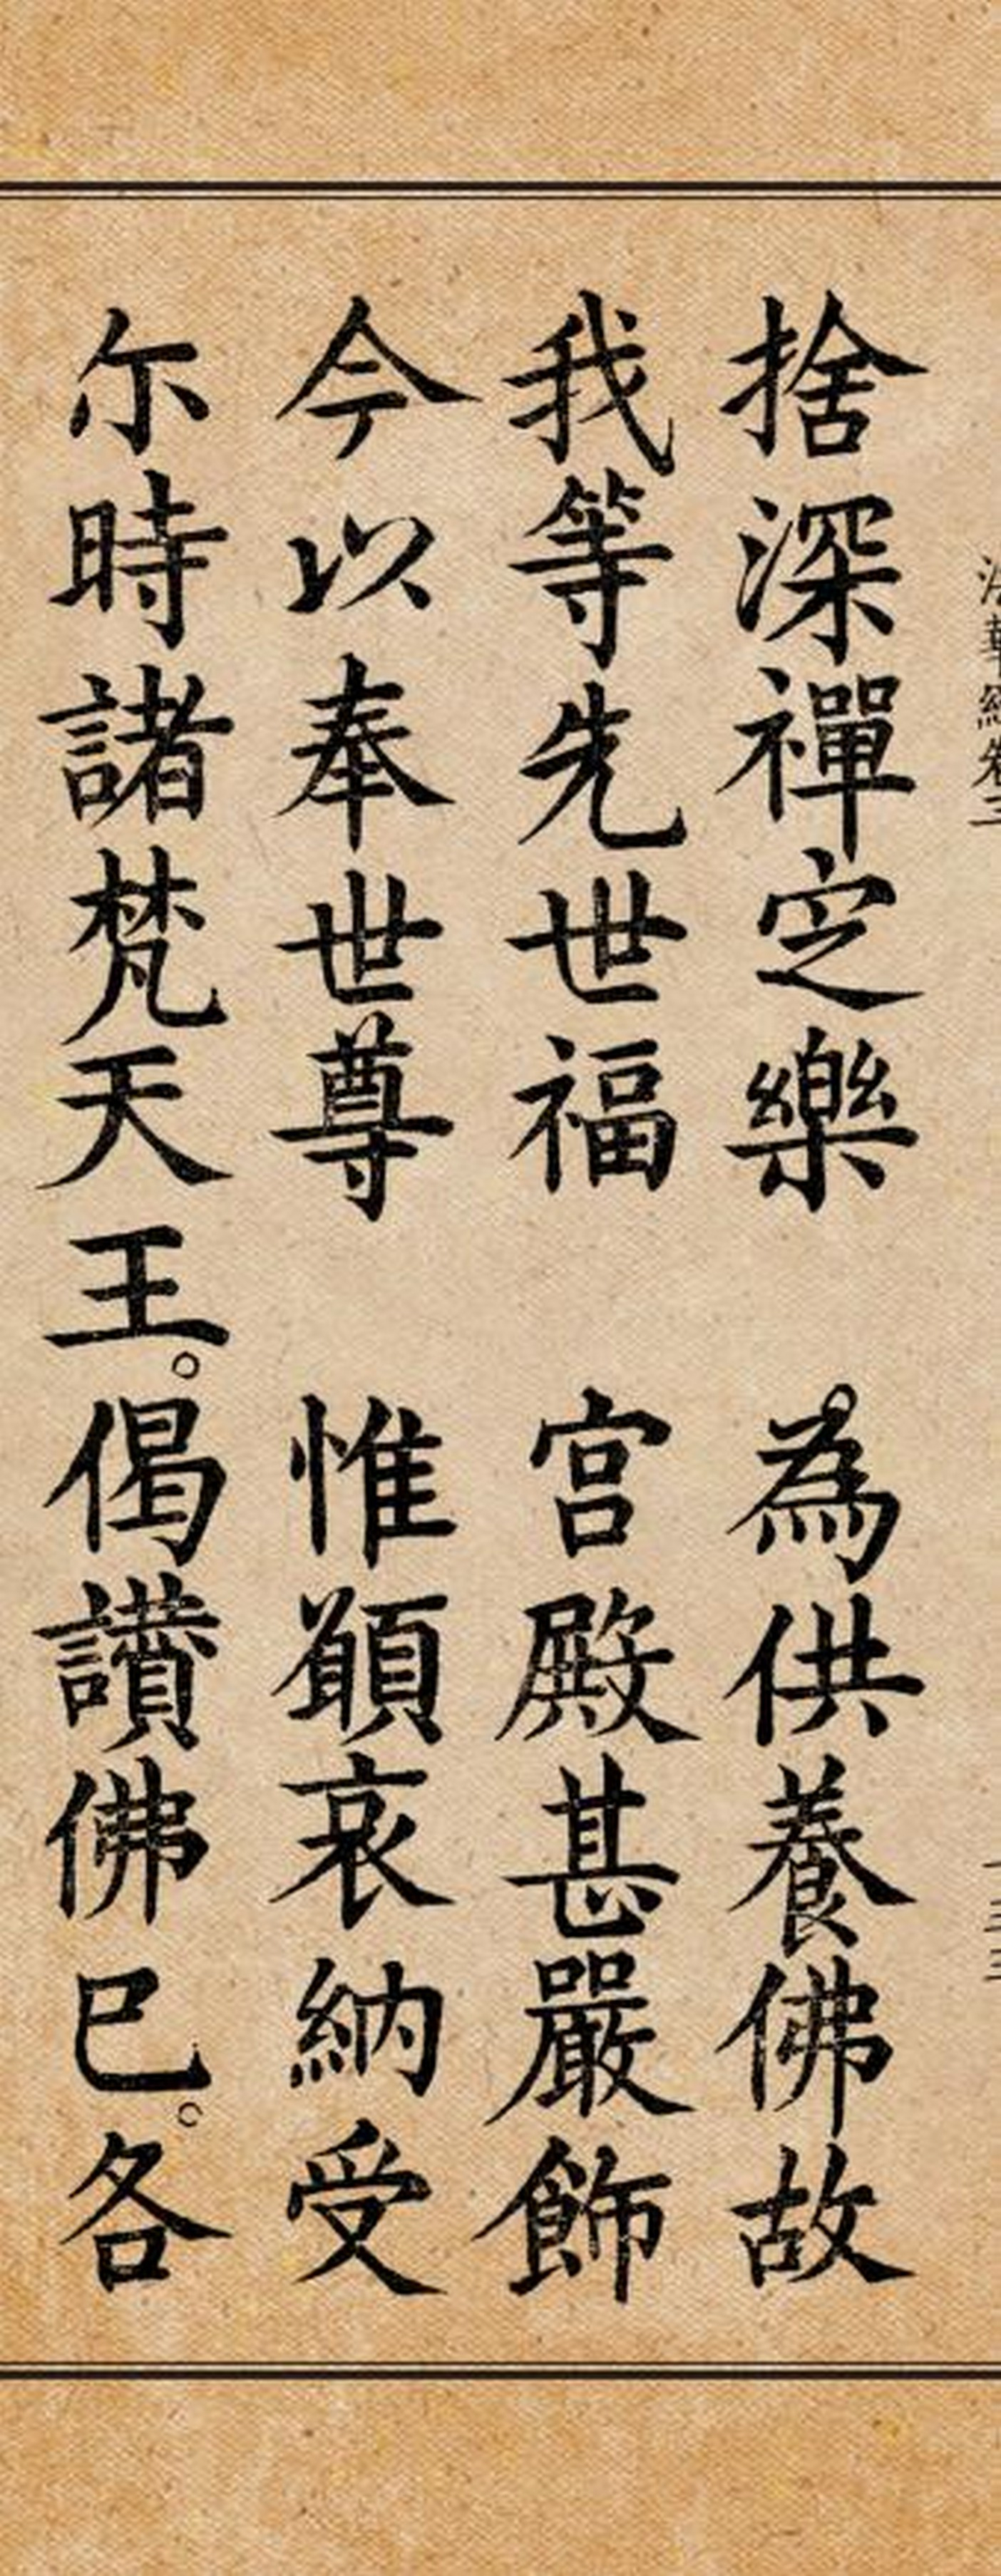 法華經卷三 一三三
捨深禪定樂 為供養佛故
我等先世福 宮殿甚嚴飾
今以奉世尊 惟願哀納受
尒時諸梵天王。偈讚佛已。各